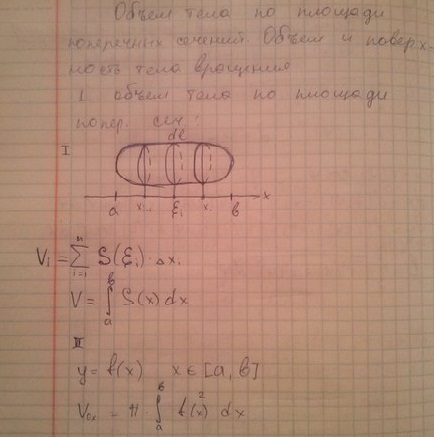 Объем тела по площади
поперечных сечений. Объем и поверх-
ность тела вращения
1. объем тела по площади
попер. сеч.
I
a x ξi x b x
V₁ = ∑ᵢ₌₁ⁿ S(ξi)·Δxi
V = ∫ₐᵇ S(x) dx
II
y = f(x) x ∈ [a, b]
Vox = π · ∫ₐᵇ f(x)² dx